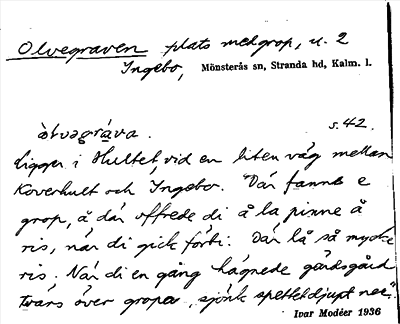 Olvegraven plats med grop, u. 2
Ingebo, Mönsterås sn, Stranda hd, Kalm. l.
s. 42.
Ligger i Hultet, vid en liten väg mellan
Koverhult och Ingebo. "Där fanns e
grop, å där offrede di å la pinne å
ris, när di gick förbi. Där lå så mycke
ris. När di en gång hägnede gärdsgård
tvärs över gropa, sjönk spettet djupt ner".
Ivar Modéer 1936